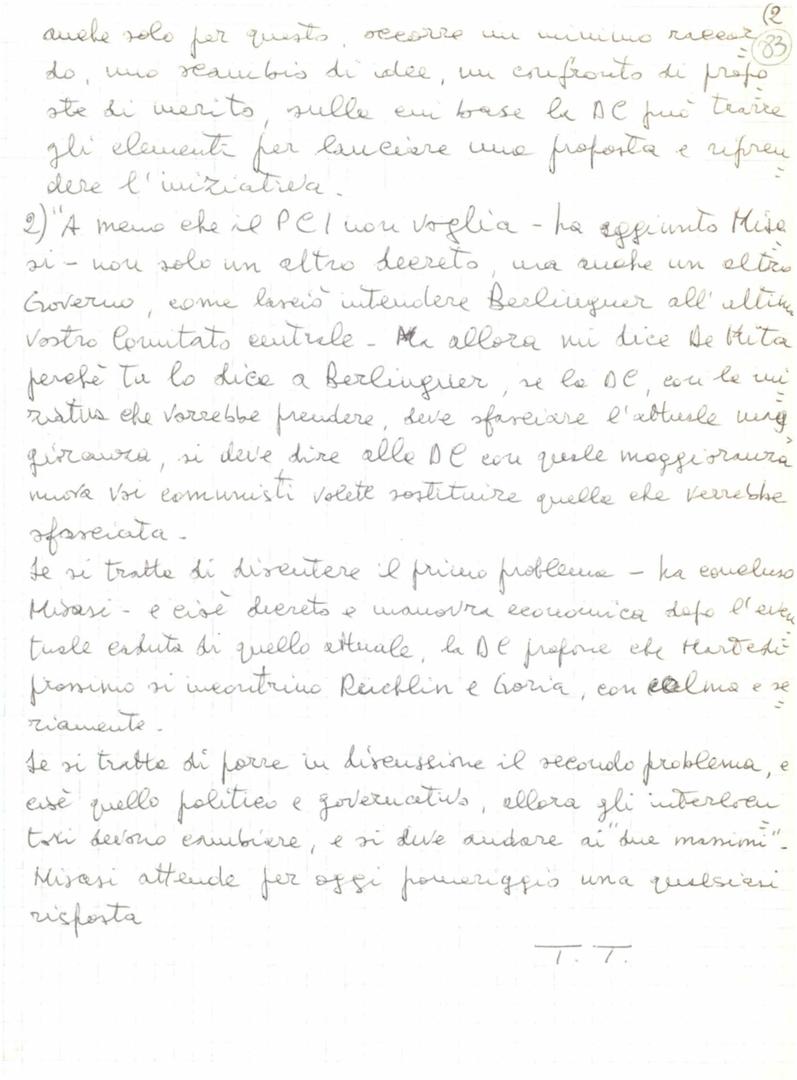 (2
83
anche solo per questo, occorre un minimo raccor=
do, uno scambio di idee, un confronto di propo=
ste di merito, sulla cui base la DC può trarre
gli elementi per lanciare una proposta e ripren=
dere l'iniziativa.
2) "A meno che il PCI non voglia - ha aggiunto Misa=
si - non solo un altro decreto, ma anche un altro
Governo, come lasciò intendere Berlinguer all'ultimo
vostro Comitato centrale - Ma allora mi dice De Mita
perchè Tu lo dica a Berlinguer, se la DC, con le ini=
ziative che vorrebbe prendere, deve sfasciare l'attuale mag=
gioranza, si deve dire alla DC con quale maggioranza
nuova voi comunisti volete sostituire quella che verrebbe
sfasciata -
Se si tratta di discutere il primo problema - ha concluso
Misasi - e cioè decreto e manovra economica dopo l'even=
tuale caduta di quello attuale, la DC propone che Martedì
prossimo si incontrino Reichlin e Goria, con calma e se=
riamente.
Se si tratta di porre in discussione il secondo problema, e
cioè quello politico e governativo, allora gli interlocu=
tori devono cambiare, e si deve andare ai "due massimi" -
Misasi attende per oggi pomeriggio una qualsiasi
risposta
T. T.